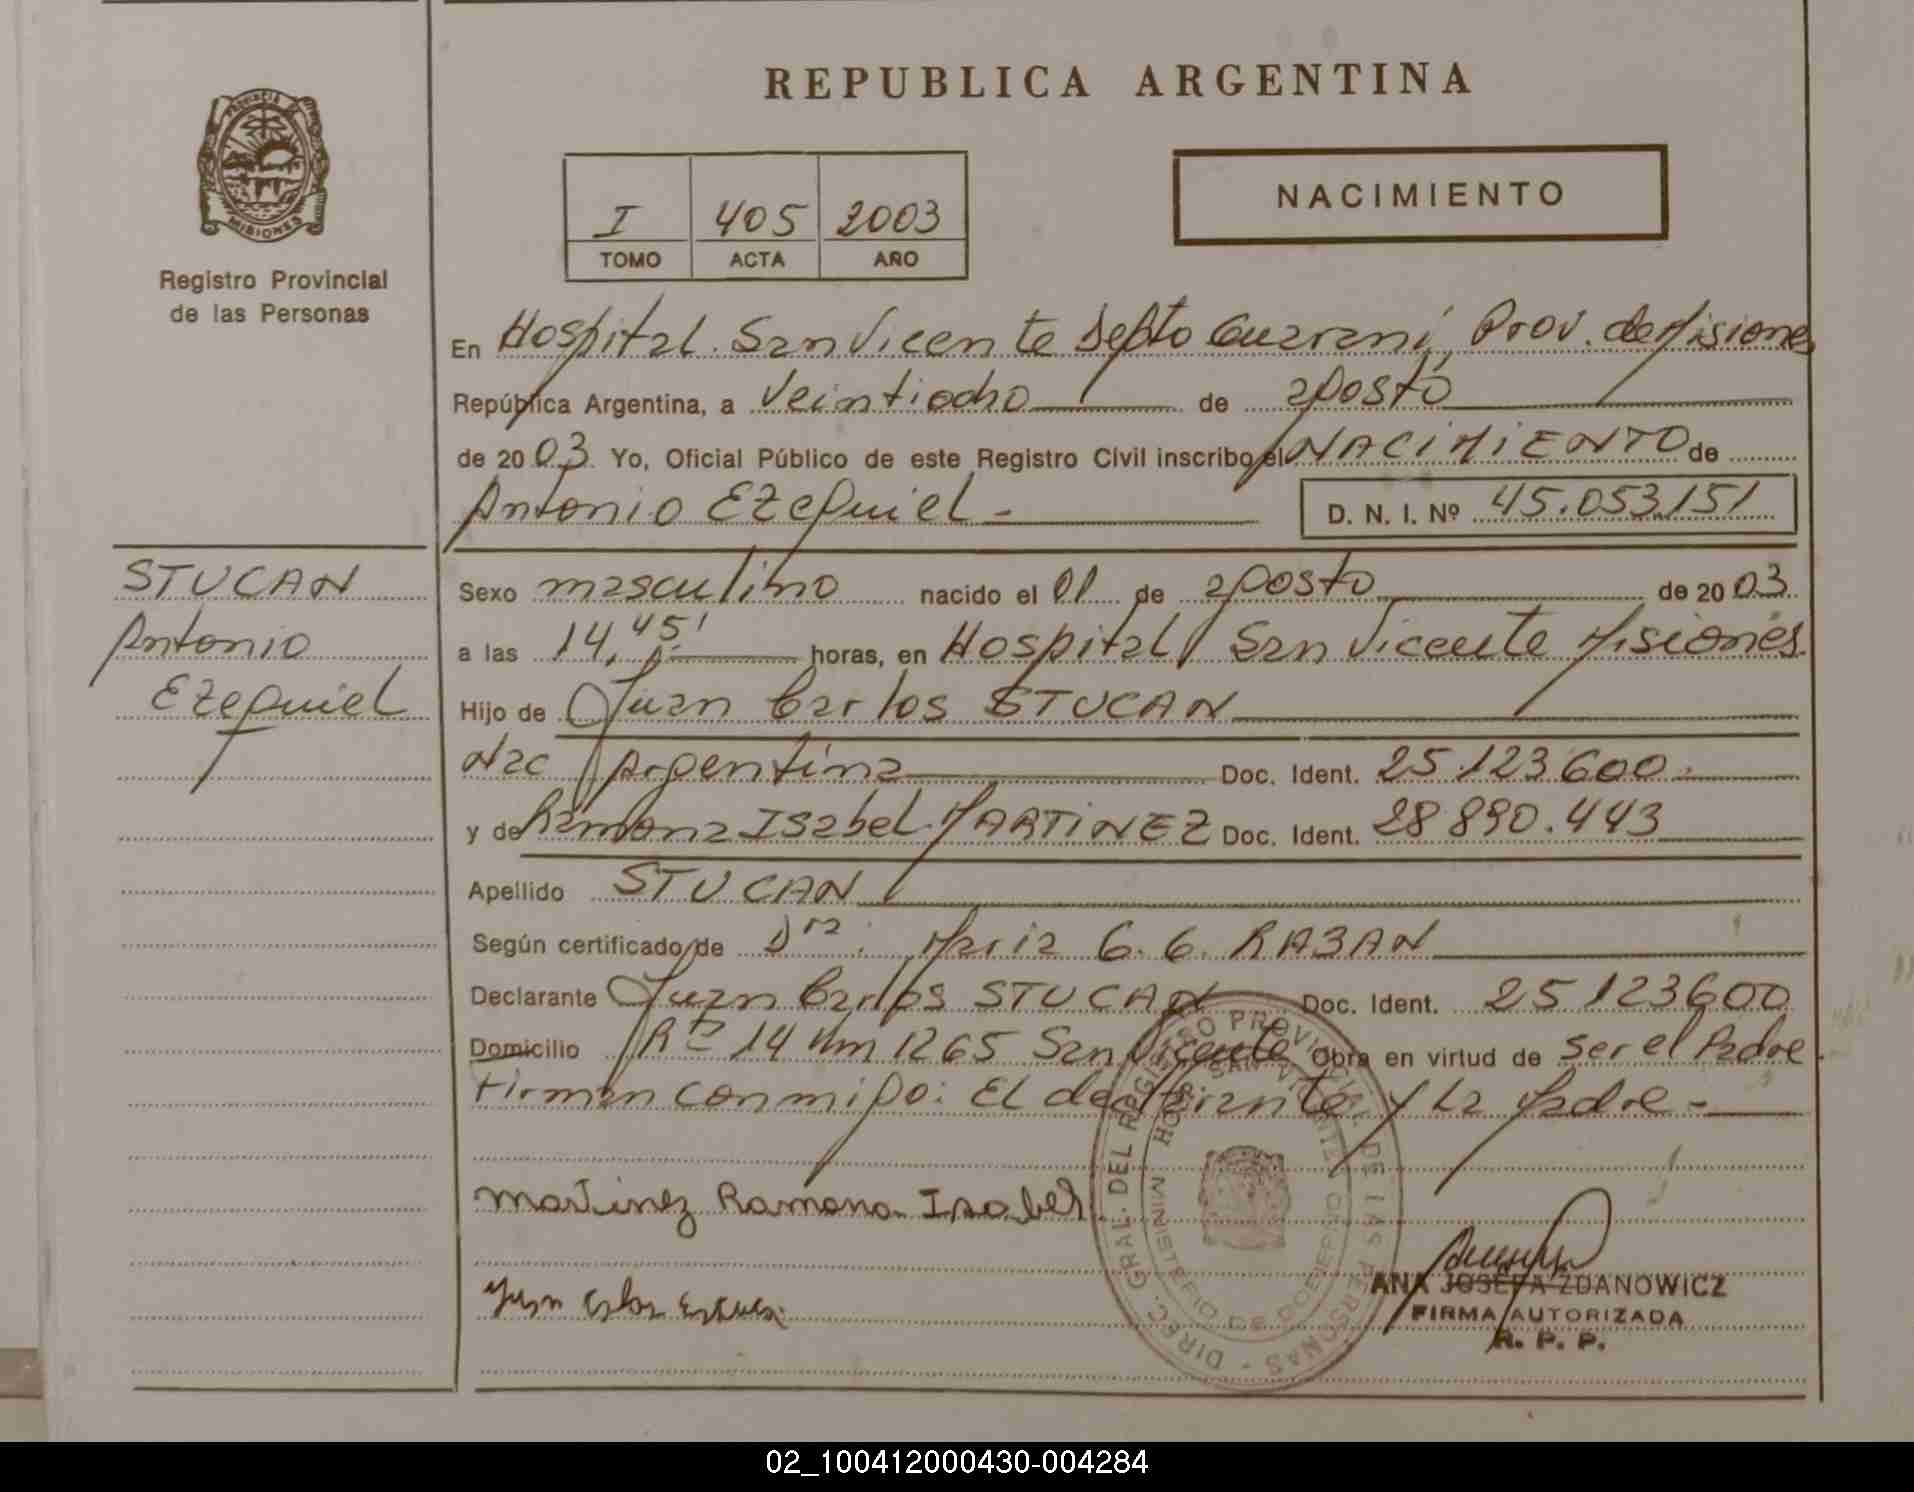 REPUBLICA ARGENTINA
PROVINCIA DE
MISIONES
Registro Provincial
de las Personas
I 405 2003
TOMO ACTA AÑO
NACIMIENTO
En Hospital San Vicente Depto Guaraní, Prov. de Misiones
República Argentina, a Veintiocho de agosto
de 2003 Yo, Oficial Público de este Registro Civil inscribo el NACIMIENTO de
Antonio Ezequiel - D. N. I. Nº 45.053.151
STUCAN
Antonio
Ezequiel
Sexo masculino nacido el 01 de agosto de 2003
a las 14,45' horas, en Hospital San Vicente Misiones.
Hijo de Juan Carlos STUCAN
Nac Argentina Doc. Ident. 25.123.600.
y de Ramona Isabel MARTINEZ Doc. Ident. 28.890.443
Apellido STUCAN
Según certificado de Dra. Maria G. G.
Declarante Juan Carlos STUCAN Doc. Ident. 25.123600
Domicilio Rta 14 Km 1265 San Vicente Obra en virtud de ser el Padre
Firman conmigo: El declarante y La Madre -
Martinez Ramona Isabel
Juan
DIREC. GRAL. DEL REGISTRO PROVINCIAL DE LAS PERSONAS
HOSP. SAN VICENTE
MINISTERIO DE GOBIERNO
ANA JOSEFA ZDANOWICZ
FIRMA AUTORIZADA
R. P. P.
02_100412000430-004284